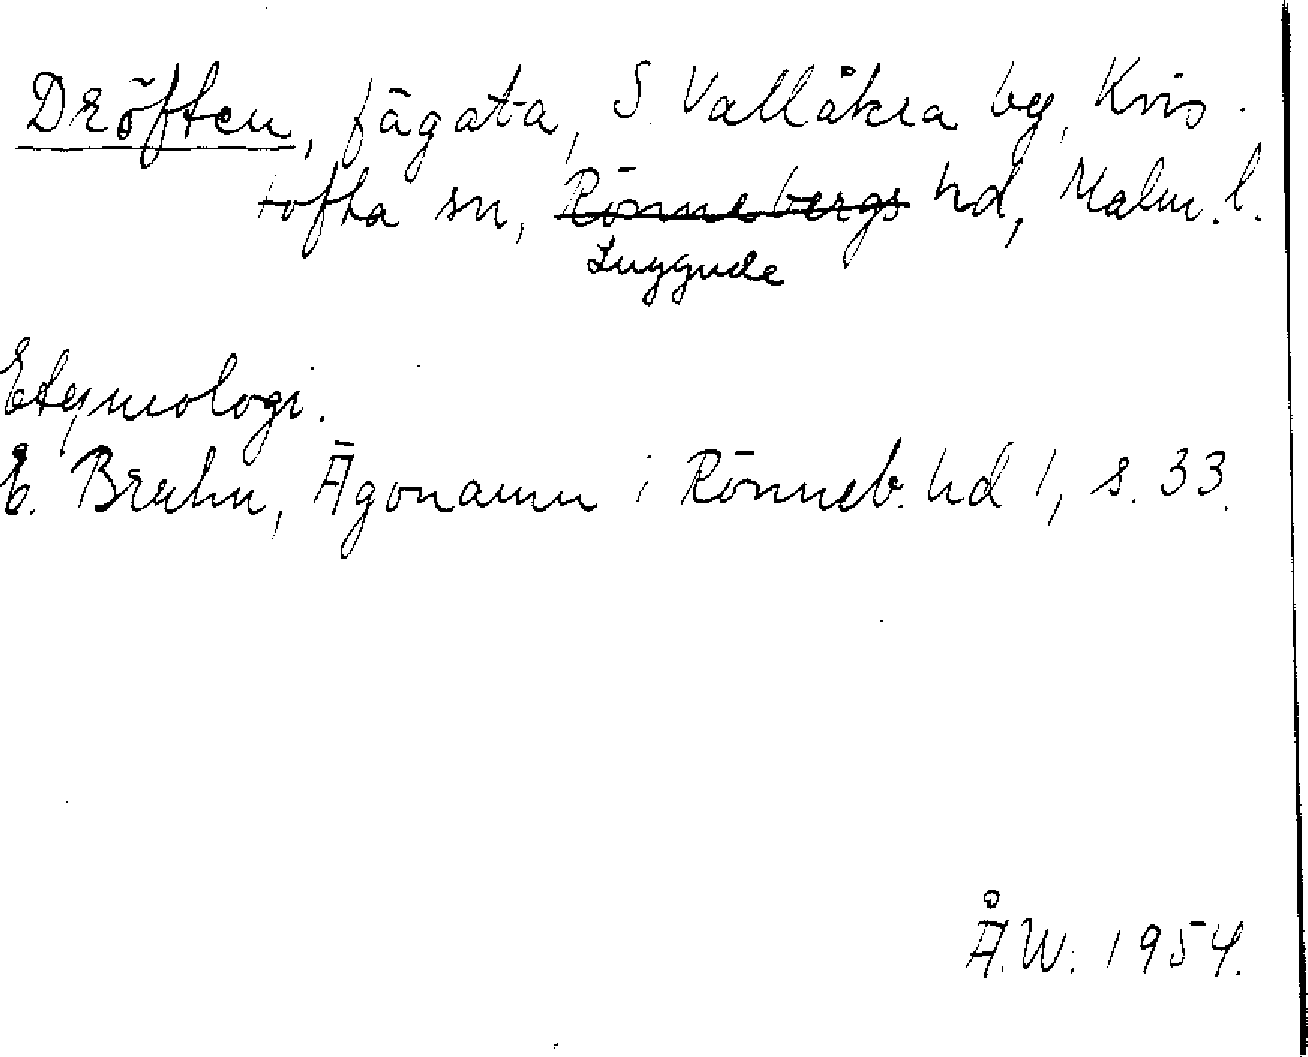 Dröften, fägata, S. Vallåkra by, Kvis-
tofta sn, Rönnebergs hd, Malm. l.
Luggude
Etymologi.
E. Bruhn, Ägonamn i Rönneb. hd 1, s. 33.
Å.W. 1954.